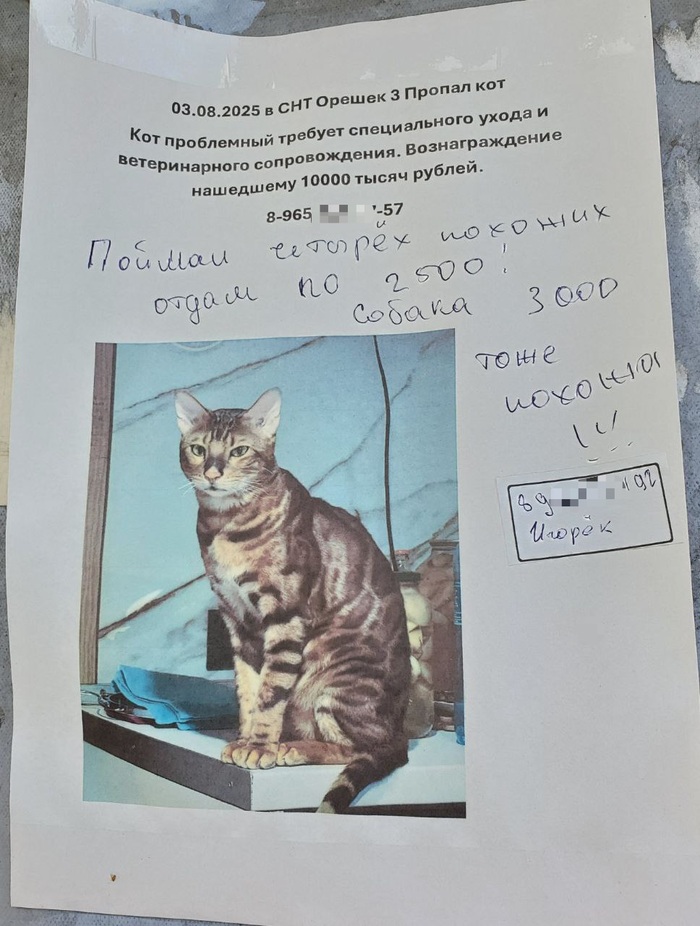 03.08.2025 в СНТ Орешек 3 Пропал кот
Кот проблемный требует специального ухода и
ветеринарного сопровождения. Вознаграждение
нашедшему 10000 тысяч рублей.
8-965 -57
Поймал четырёх похожих
отдам по 2500!
Собака 3000
тоже
похожа
!!!
89 92
Игорёк